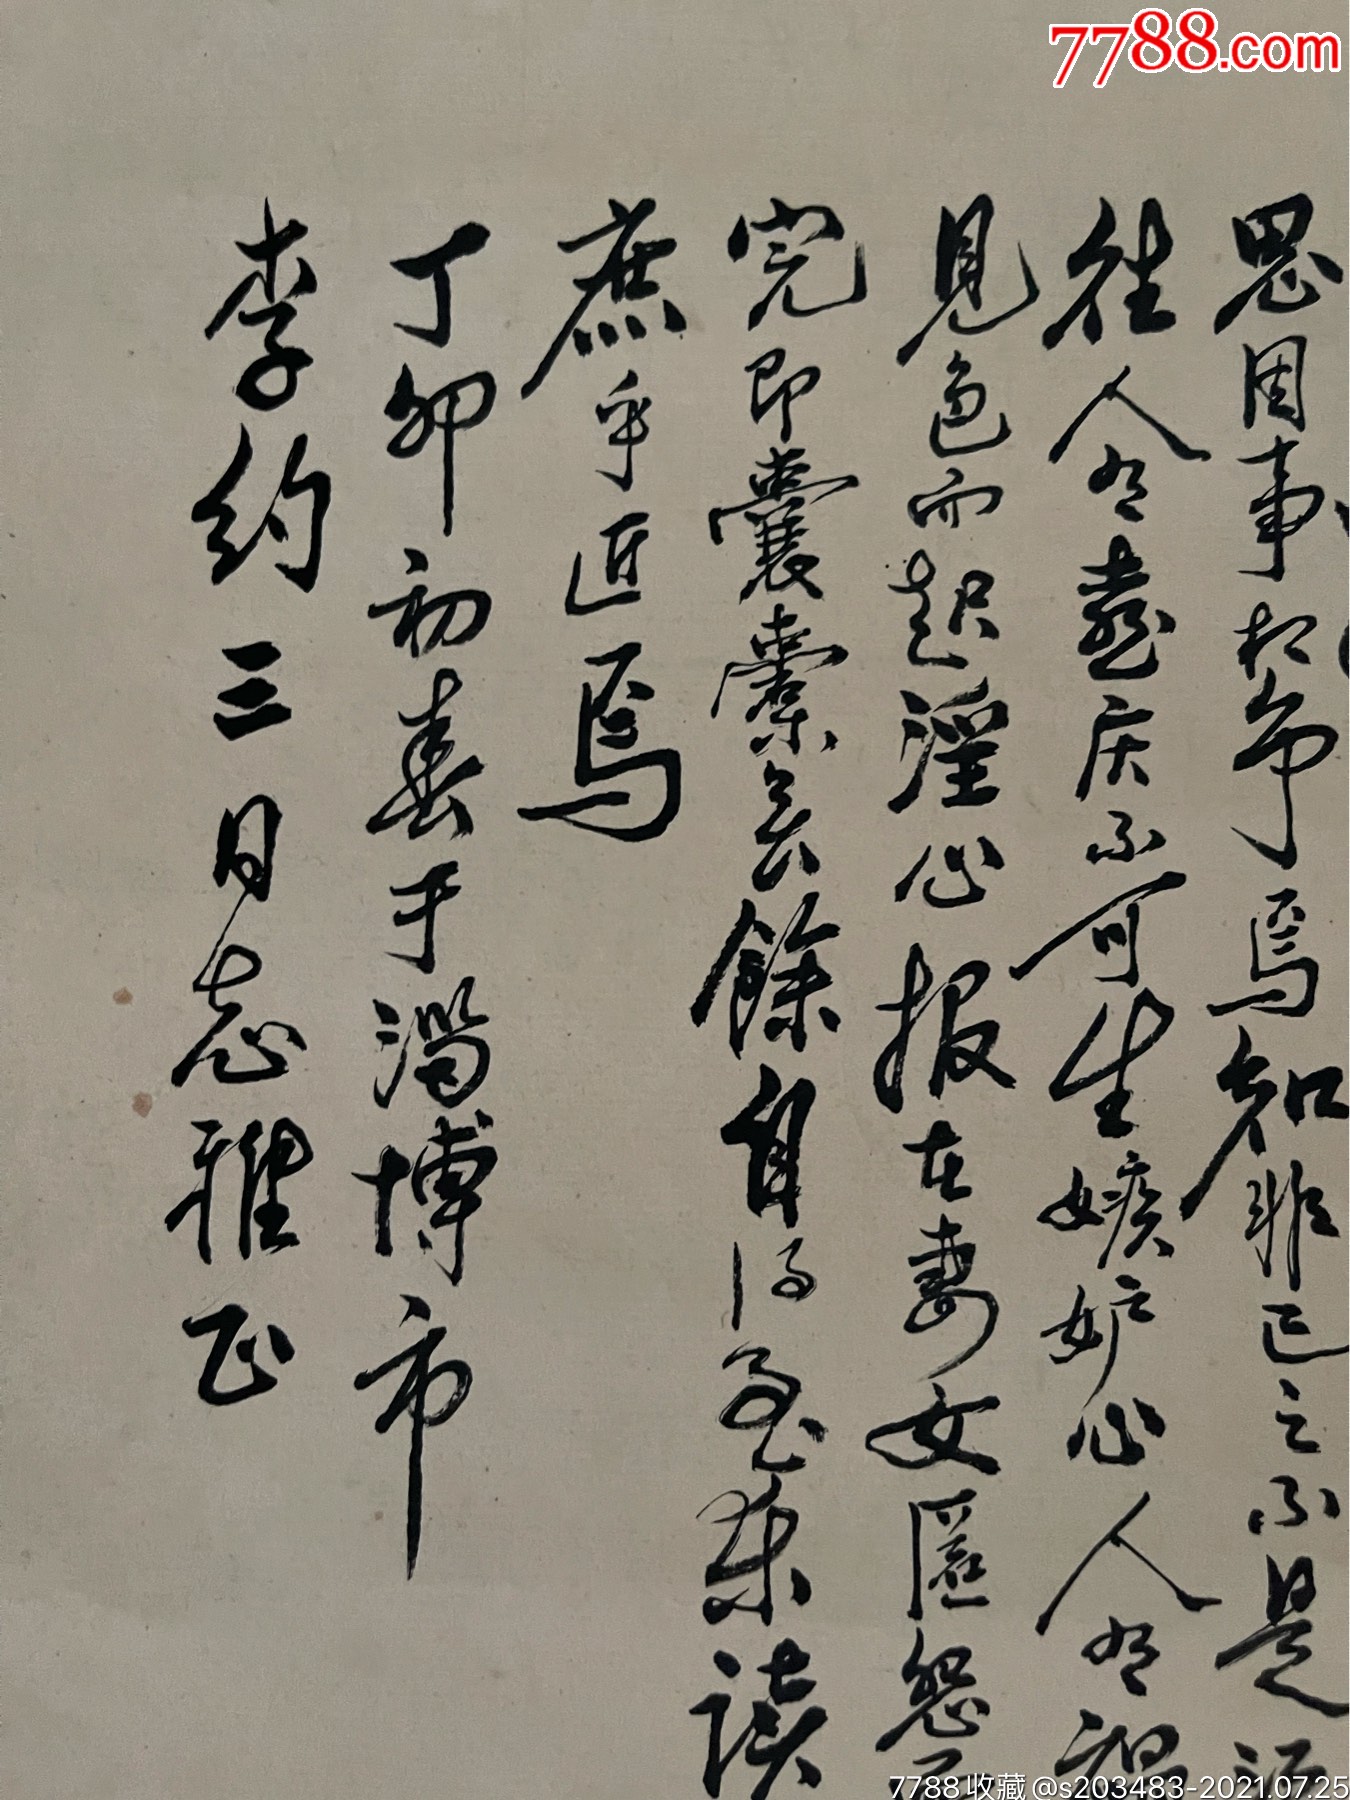 7788.com
思因事相争焉知非己之不是
往人有喜庆不可生嫉妒心人有祸
见色而起淫心报在妻女匿怨
完即囊橐无馀自得至乐读
庶乎近焉
丁卯初春于淄博市
李约三同志雅正
7788收藏@s203483-2021.07.25